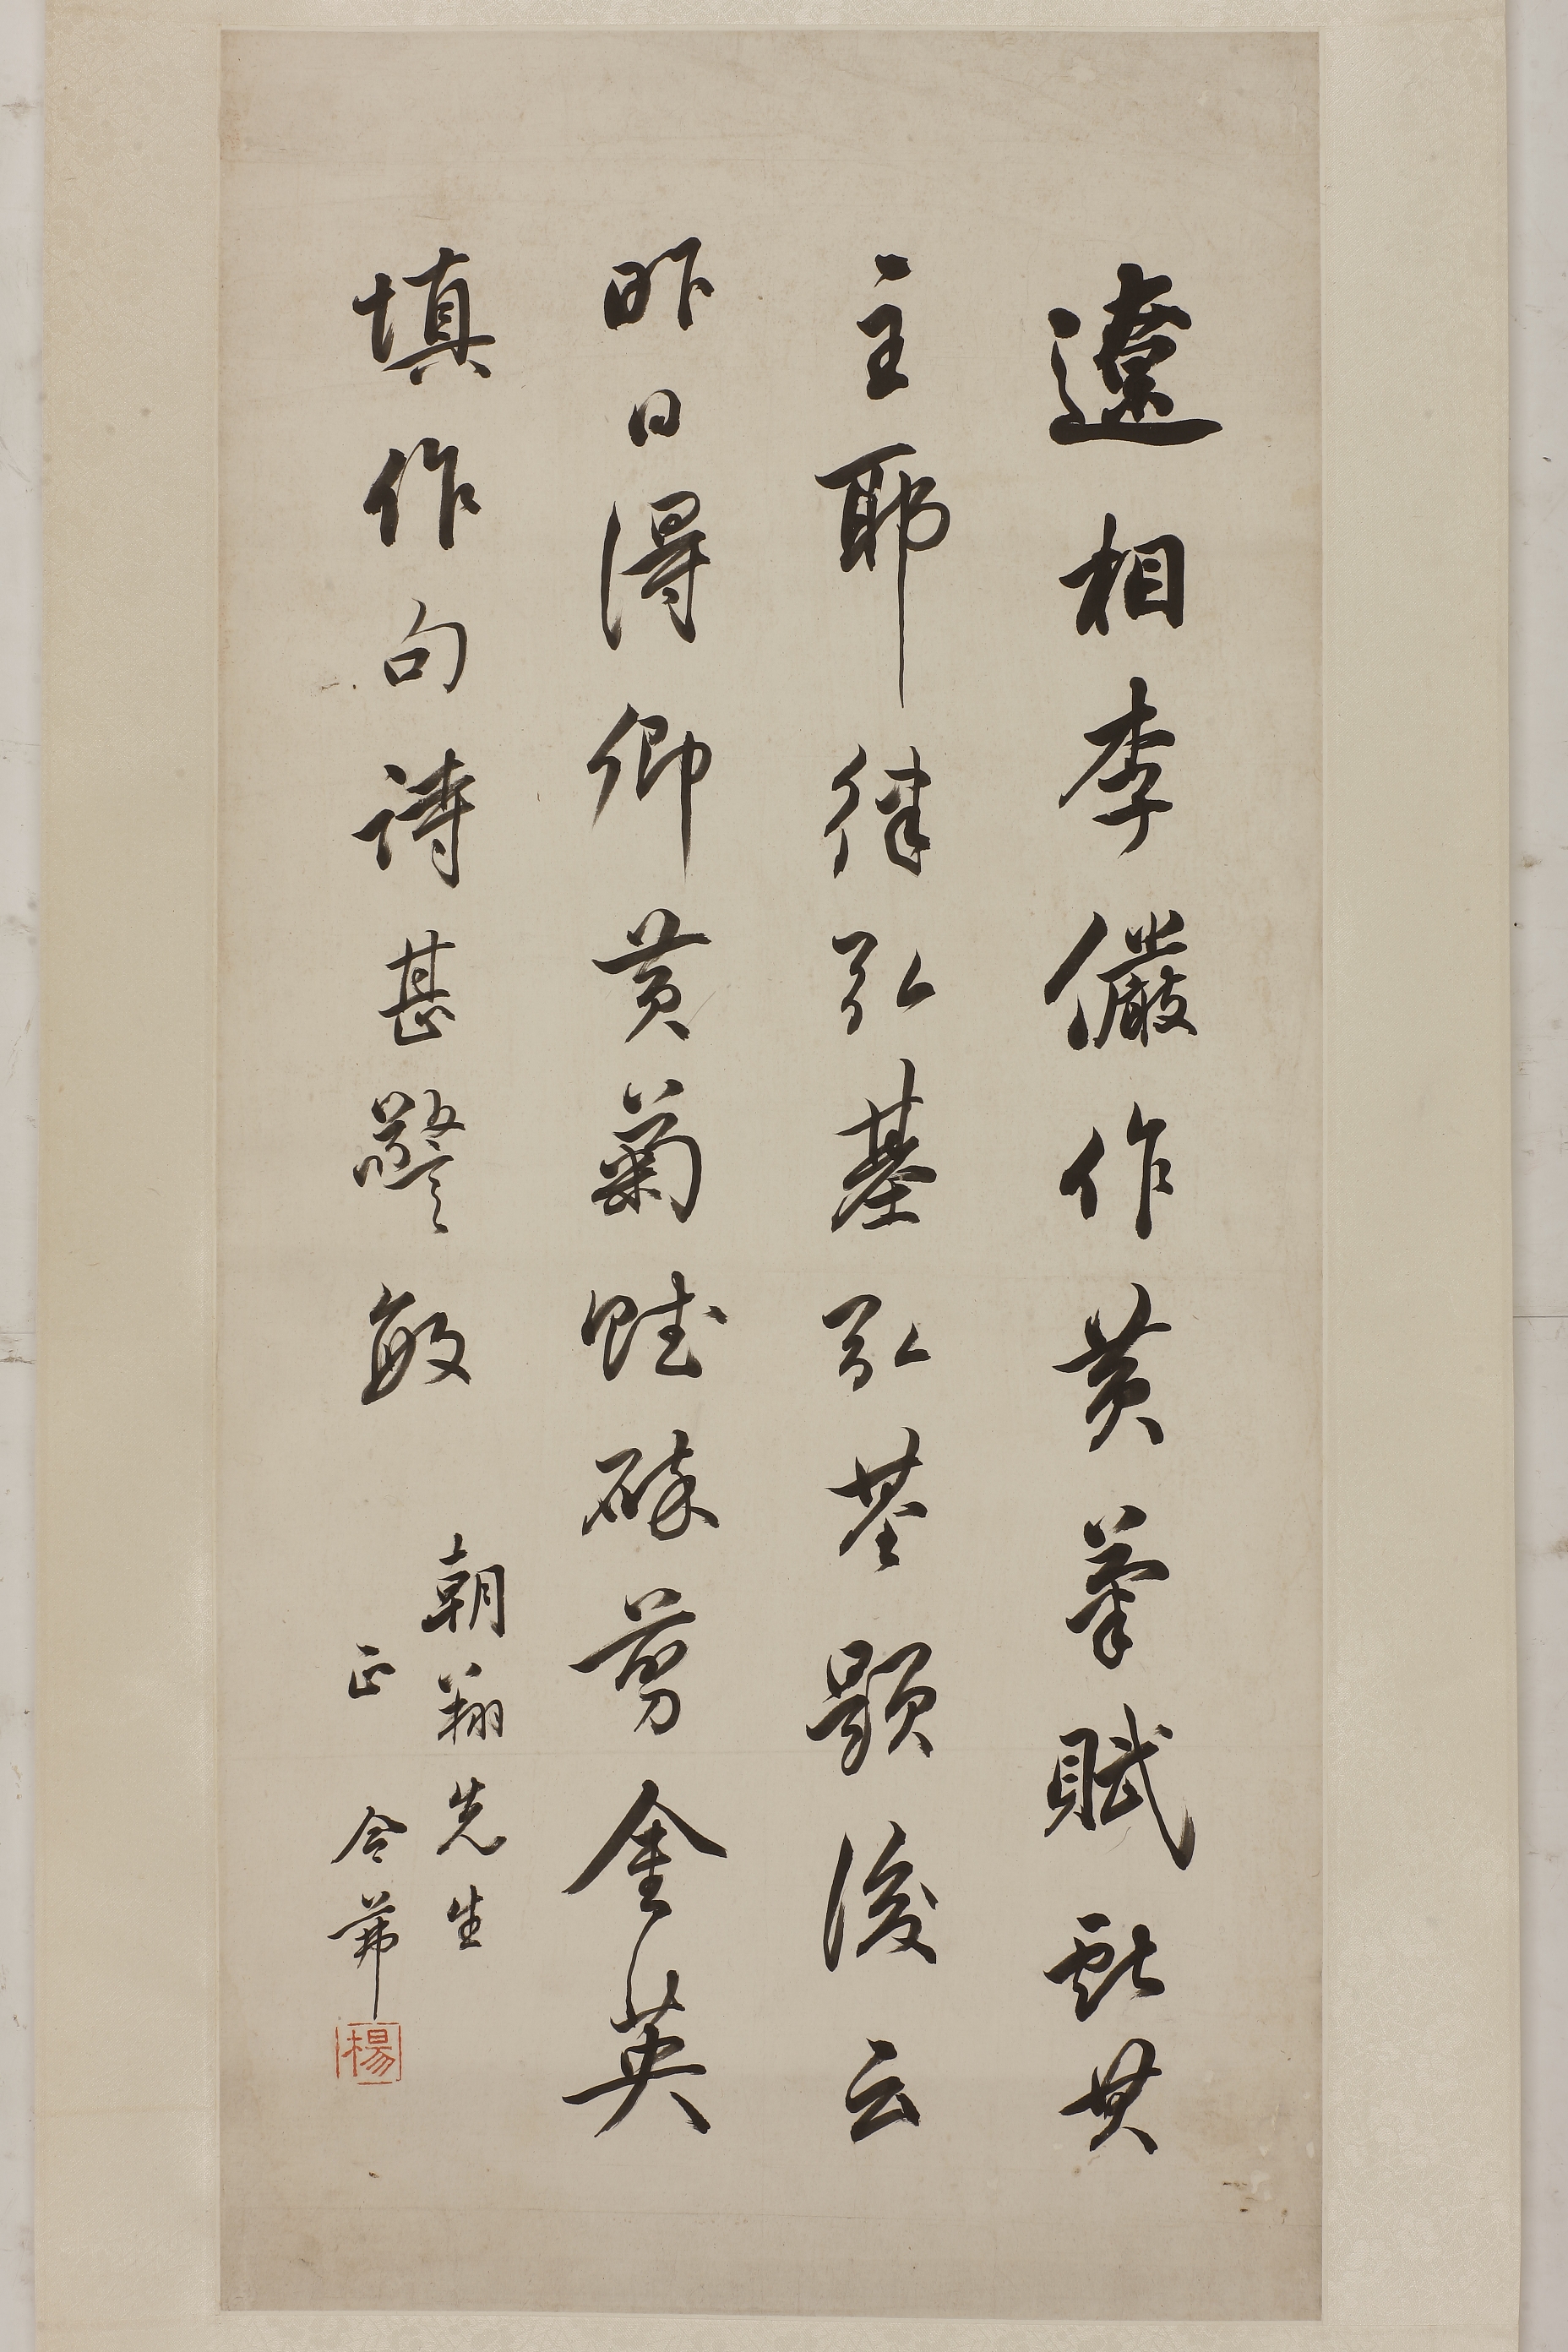 遼相李儼作黃菊賦獻其
主耶律弘基弘基題後云
昨日得卿黃菊賦碎剪金英
填作句詩甚警敏
朝翔先生
正 令茀
楊